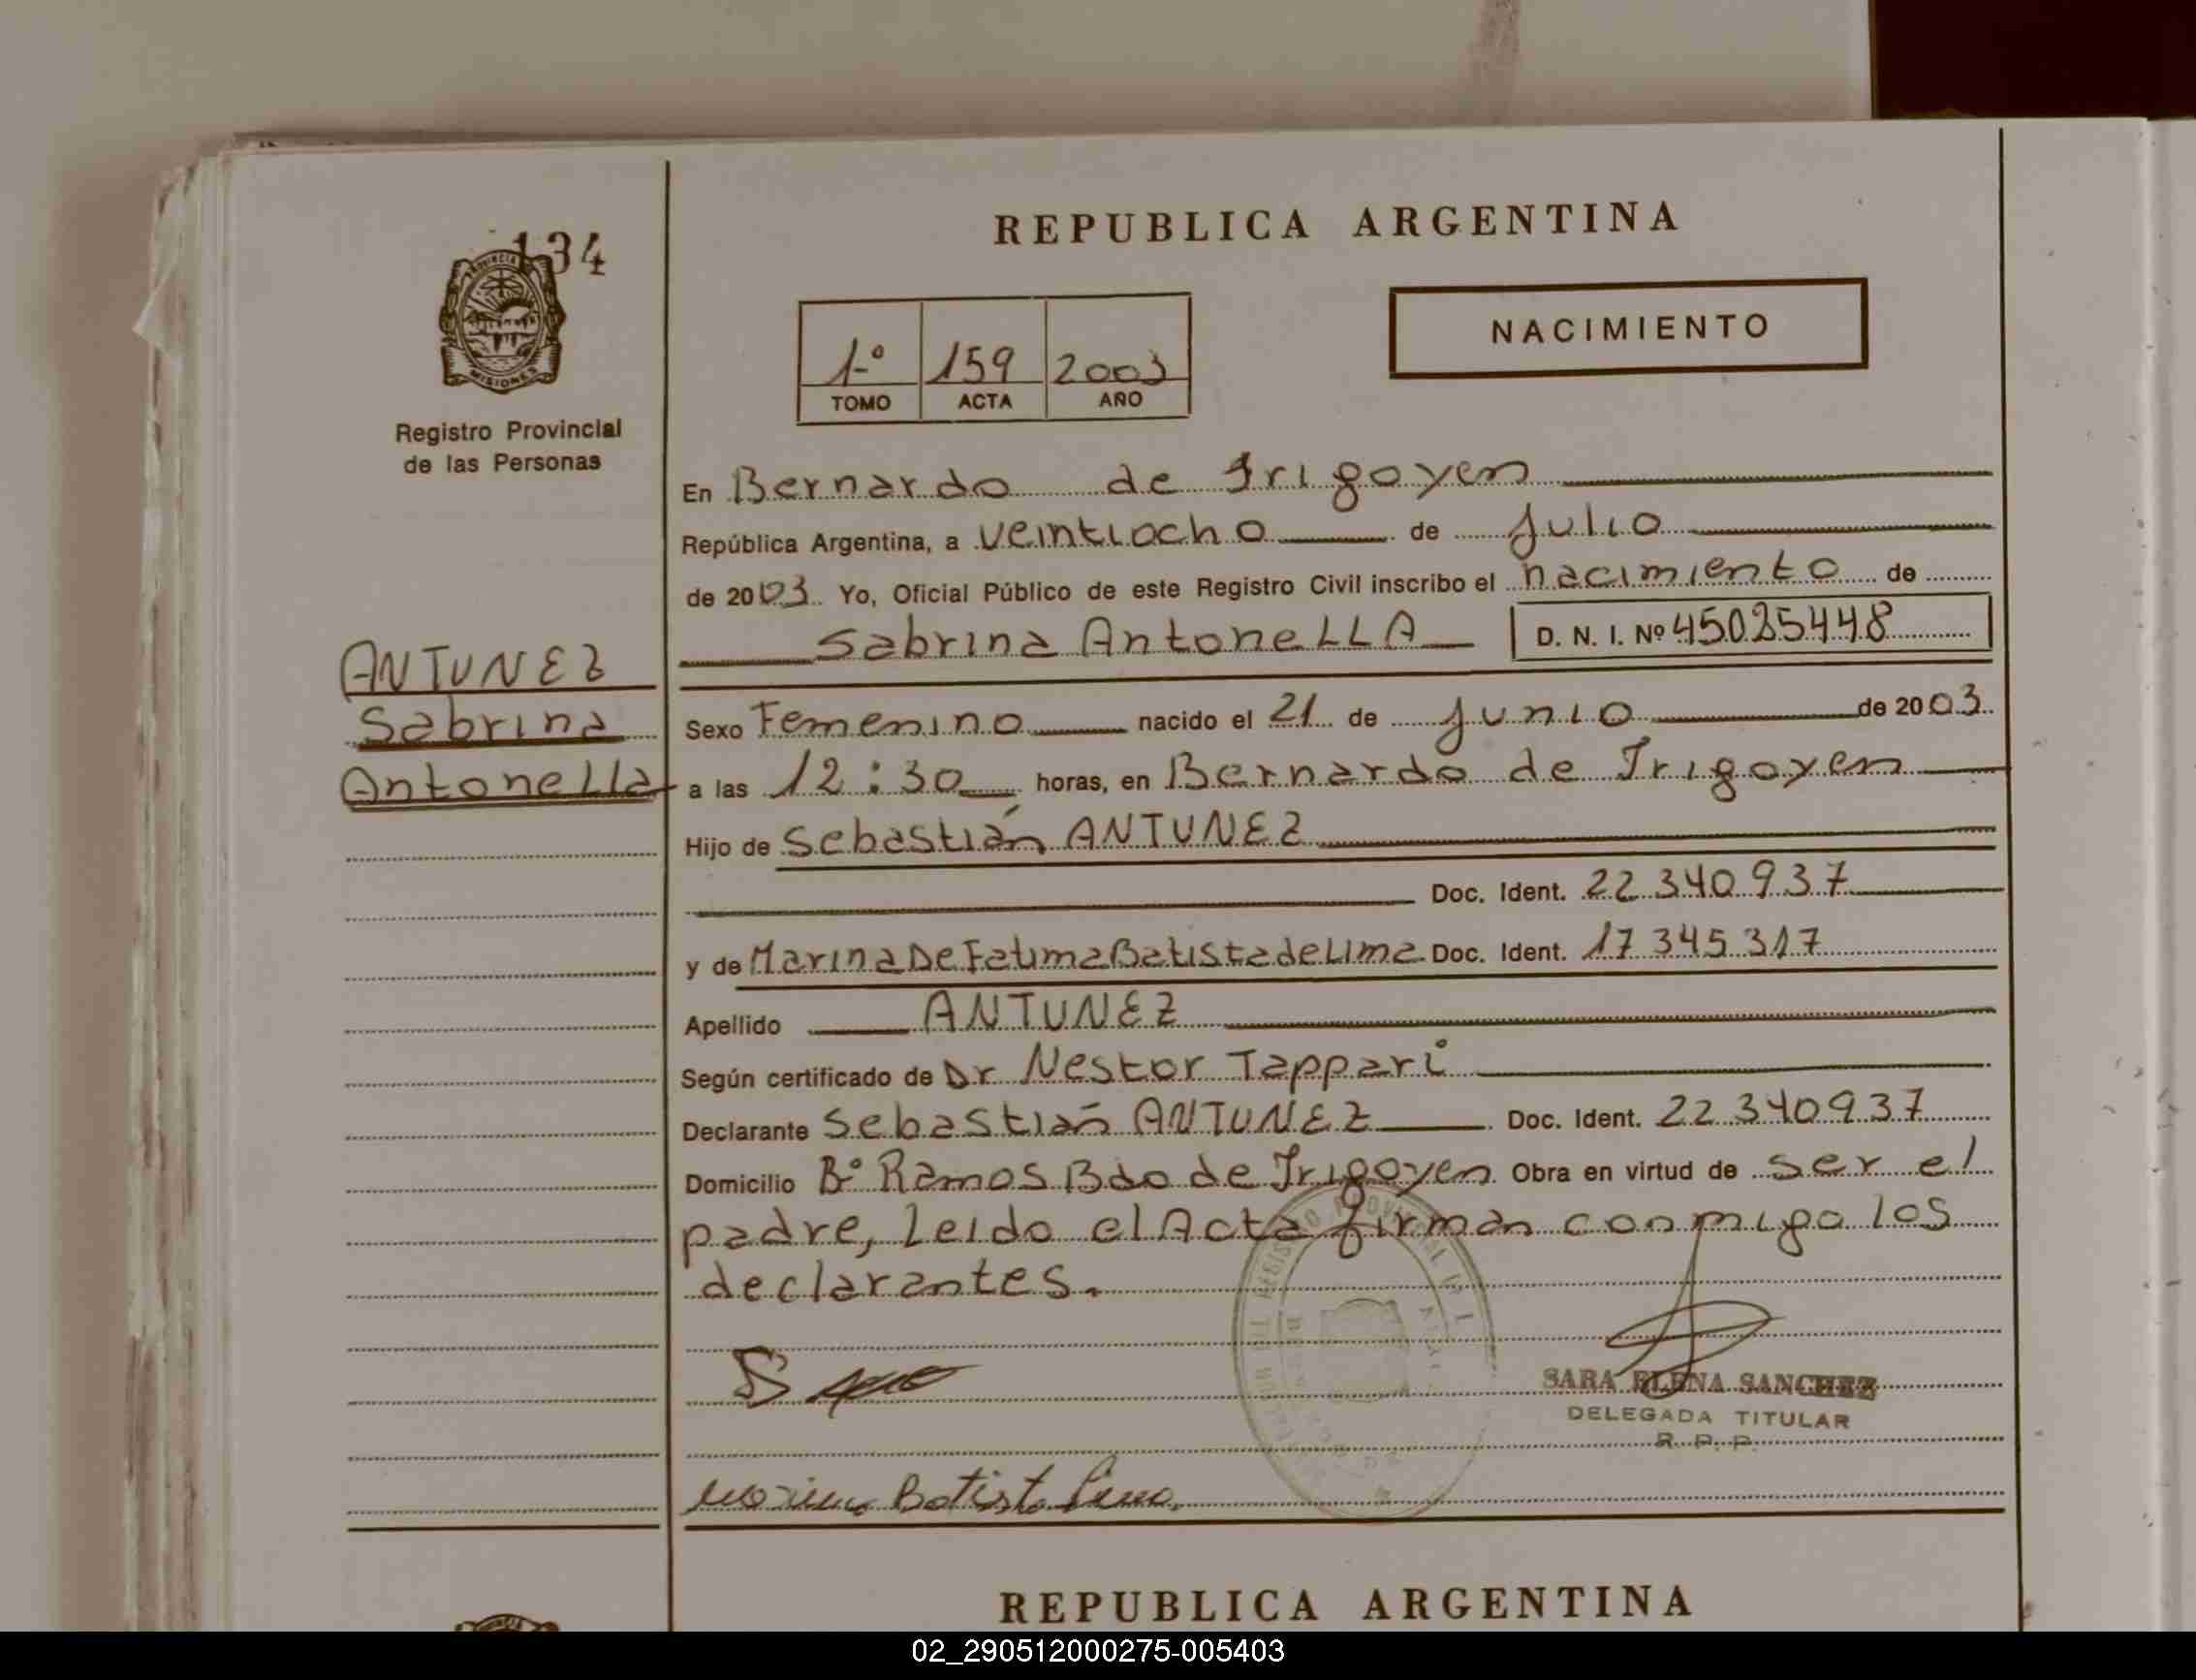 134
PROVINCIA
MISIONES
Registro Provincial
de las Personas
ANTUNEZ
Sabrina
Antonella
REPUBLICA ARGENTINA
1º 159 2003
TOMO ACTA AÑO
NACIMIENTO
En Bernardo de Irigoyen
República Argentina, a veintiocho de Julio
de 2003 Yo, Oficial Público de este Registro Civil inscribo el nacimiento de
Sabrina AntoneLLA D. N. I. Nº 45025448
Sexo Femenino nacido el 21 de junio de 2003
a las 12:30 horas, en Bernardo de Irigoyen
Hijo de Sebastián ANTUNEZ
Doc. Ident. 22 340 937
y de Marina De Fatima Batista de Lima Doc. Ident. 17 345 317
Apellido ANTUNEZ
Según certificado de Dr Nestor Tappari
Declarante Sebastián ANTUNEZ Doc. Ident. 22 340 937
Domicilio Bº Ramos Bdo de Irigoyen Obra en virtud de ser el
padre, Leido el Acta firman conmigo los
declarantes.
SARA ELENA SANCHEZ
DELEGADA TITULAR
R. P. P.
Batista Lima
REPUBLICA ARGENTINA
02_290512000275-005403